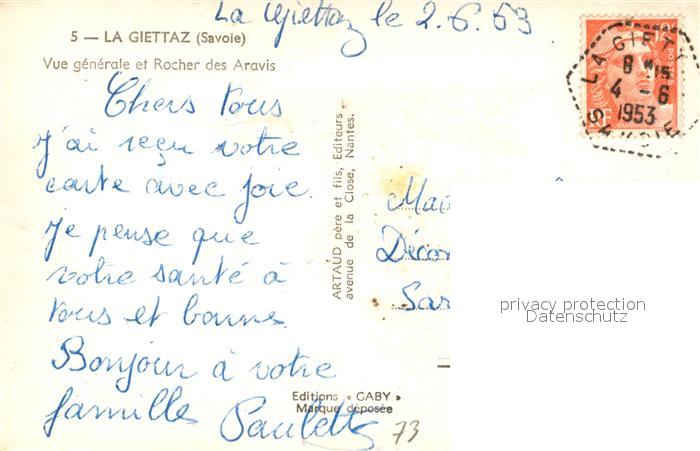 La Giettaz le 2.6.53
5 — LA GIETTAZ (Savoie)
Vue générale et Rocher des Aravis
Chers tous
j'ai reçu votre
carte avec joie.
je pense que
votre santé à
tous et bonne.
Bonjour à votre
famille Paulette
ARTAUD père et fils, Editeurs
avenue de la Close, Nantes.
Editions « GABY »
Marque déposée
73
LA GIETT
8 H 15
4 - 6
1953
SAVOIE
privacy protection
Datenschutz